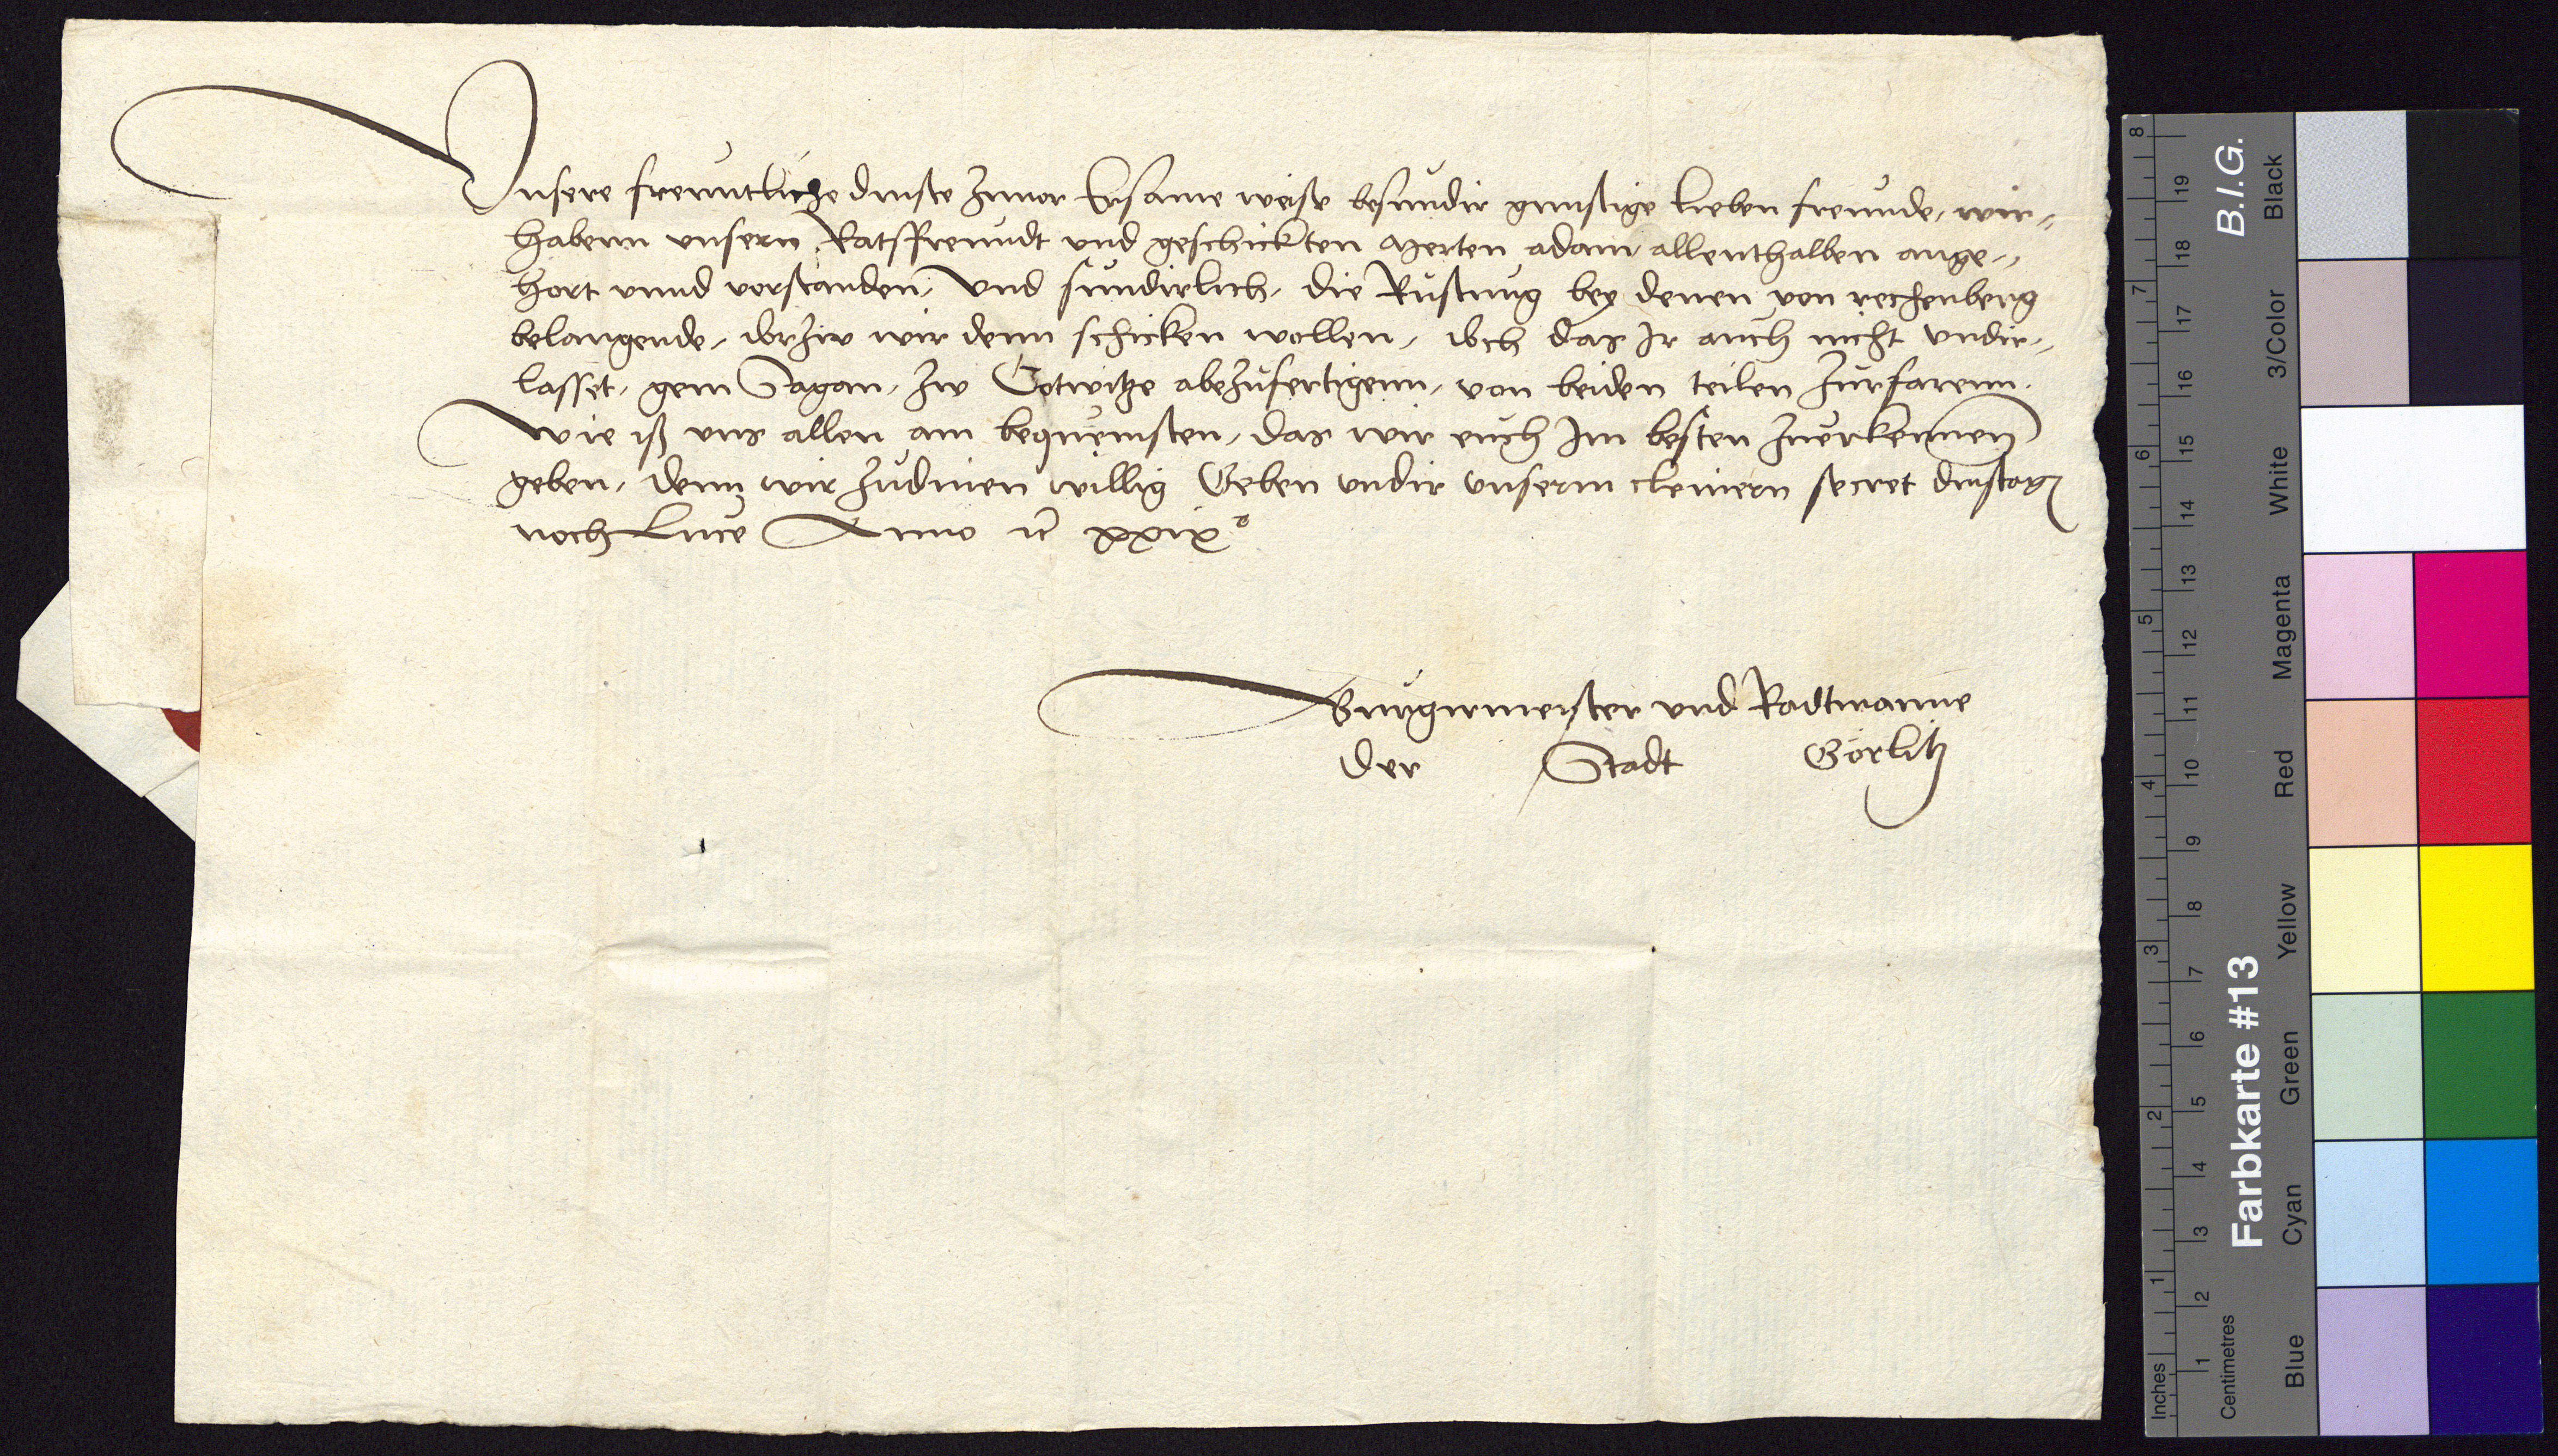 Vnsere freuntliche dinste zuuor Ersame weise besundir gunstige lieben freunde, wir
habenn vnsern Ratsffreundt vnd geschickten Merten adam allenthalben ange,,
hort vnnd vorstanden, Vnd sundirlich, die Rustung bey denen von rechenberg
belangende, dorzw wir denn schicken wollen, doch das Ir auch nicht vndir,,
lasset, gem Sagan, zw abezufertigenn, von beiden teilen zurfarenn.
Wie iß vns allen am bequemsten, das wir euch Im besten zuerkennen
geben, denn wir zudinen willig Geben vndir vnserm cleinern secret dinstag
noch Luce Anno xxix°
Burgirmeyster vnd Radtmanne
der Stadt Görlitz
B.I.G.
Farbkarte #13
Inches
1 2 3 4 5 6 7 8
Centimetres
1 2 3 4 5 6 7 8 9 10 11 12 13 14 15 16 17 18 19
Blue Cyan Green Yellow Red Magenta White 3/Color Black